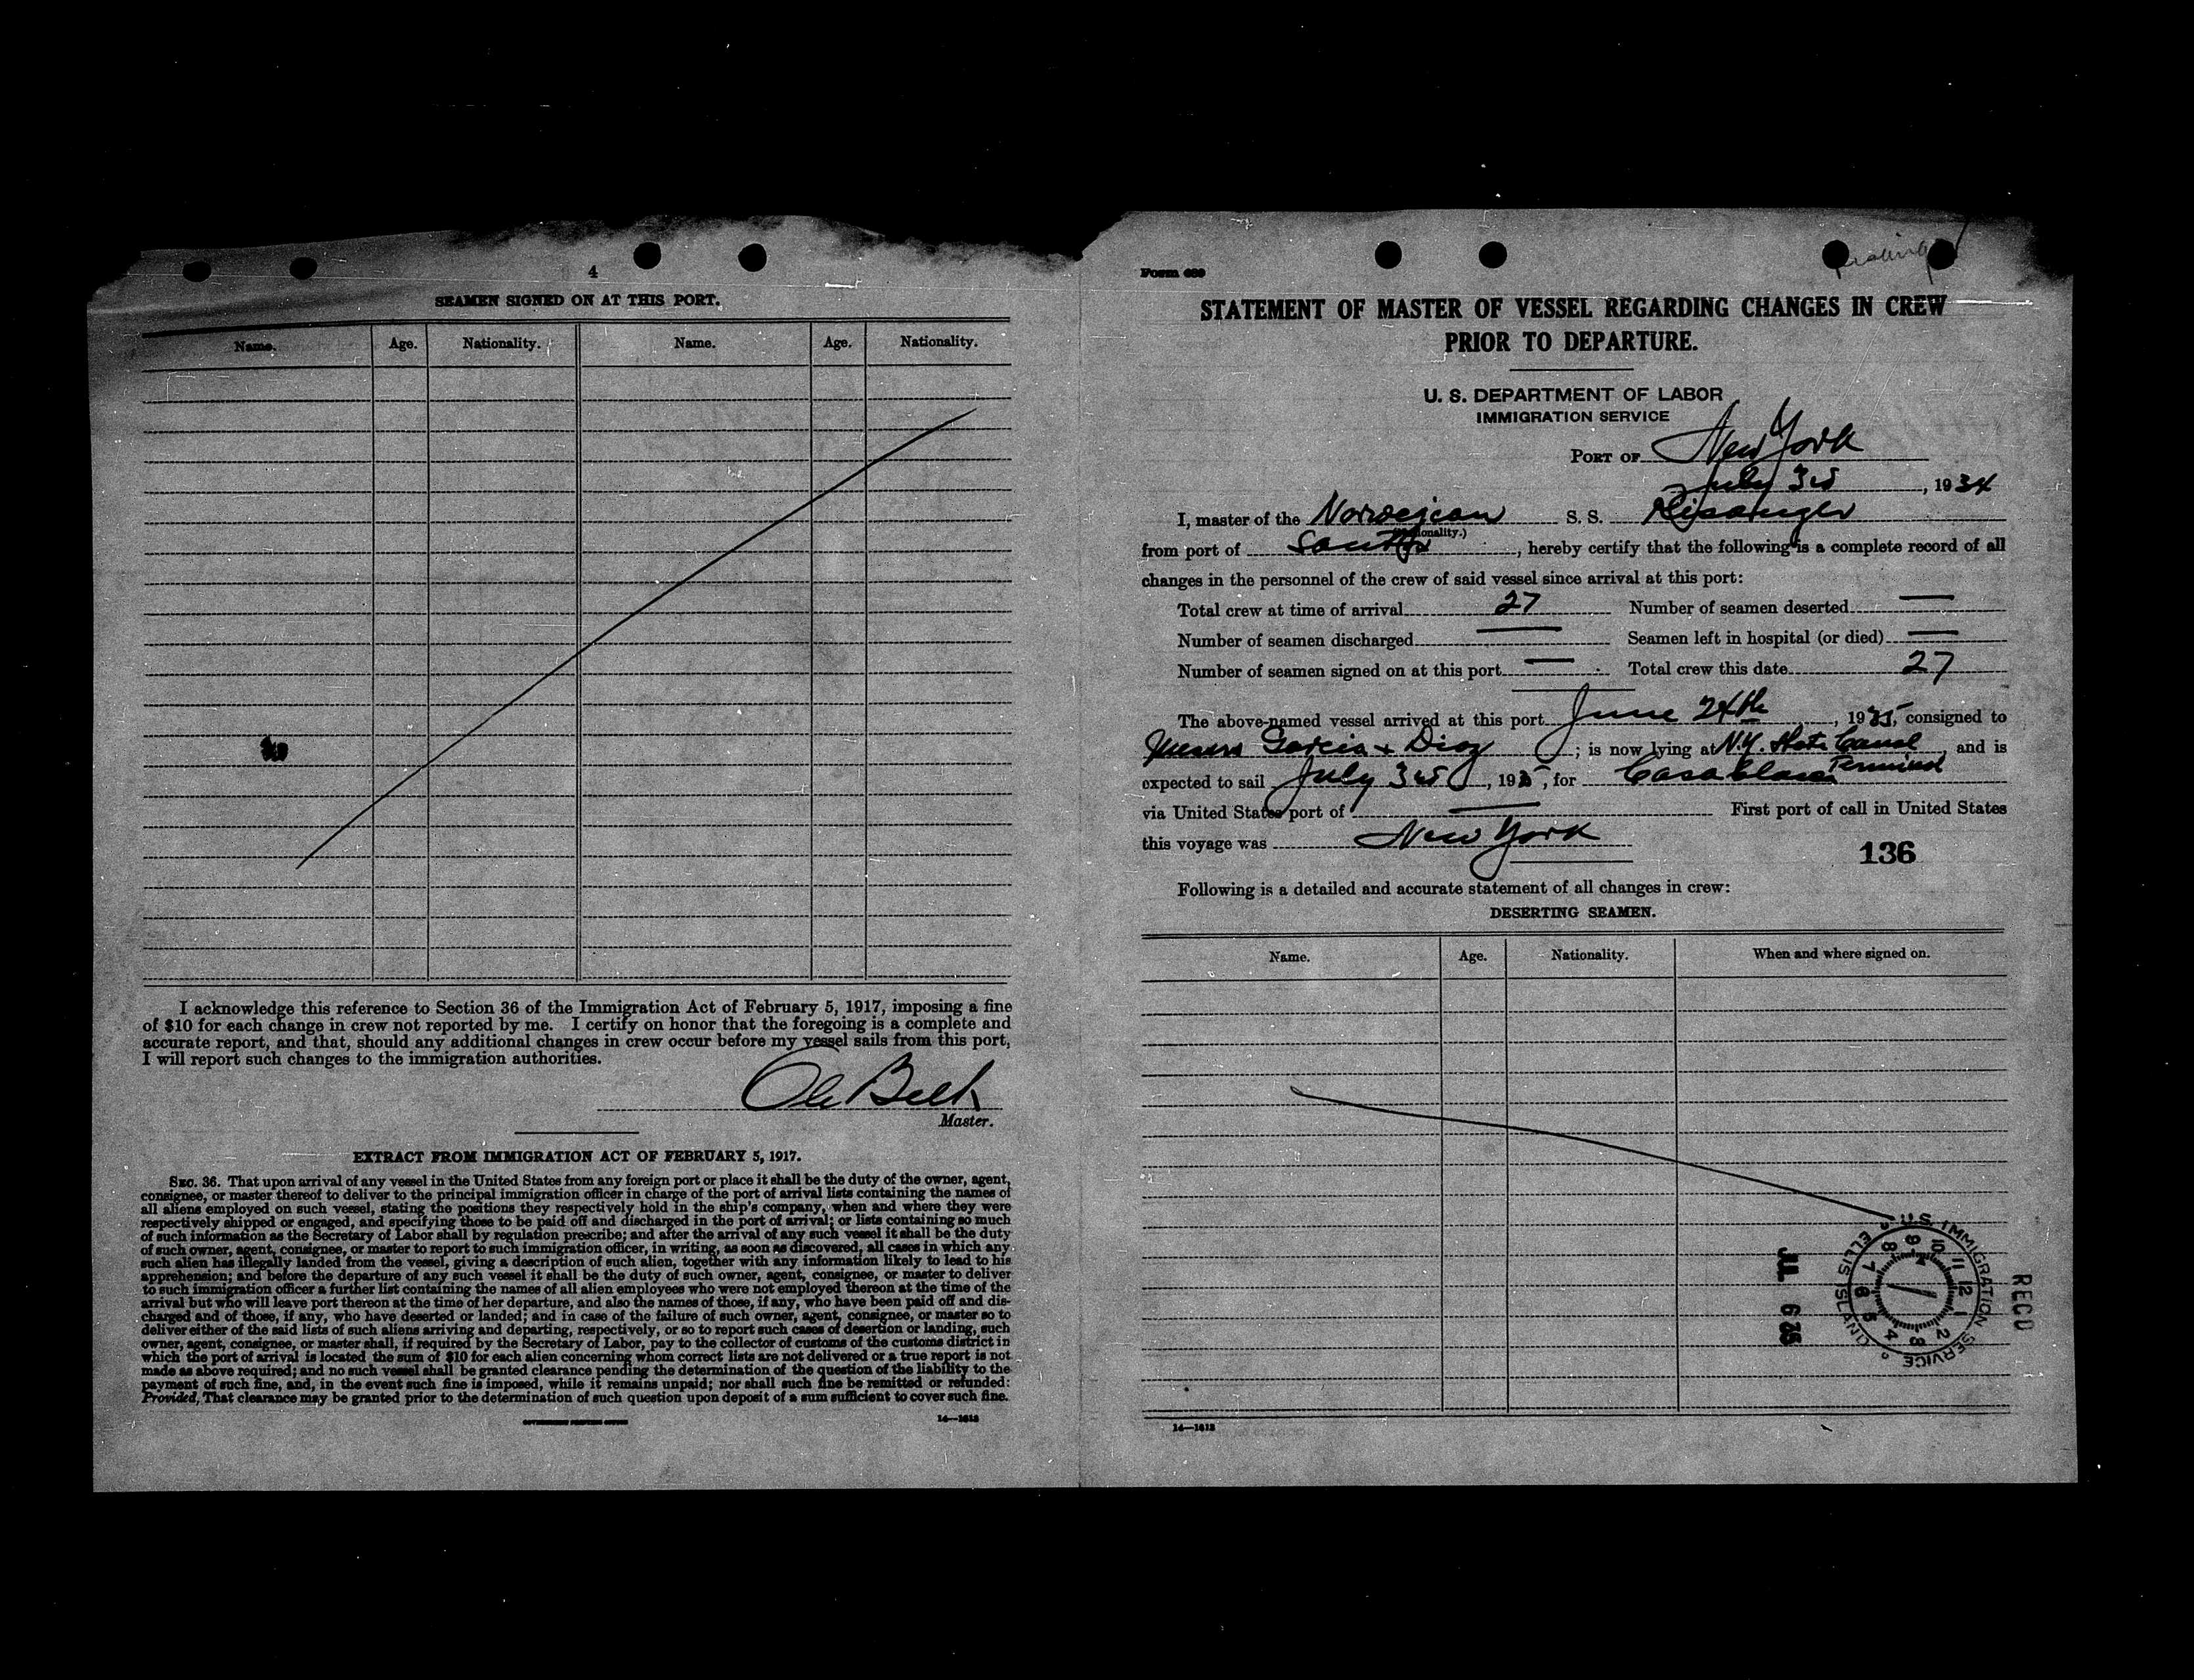 4
SEAMEN SIGNED ON AT THIS PORT.
Name. Age. Nationality. Name. Age. Nationality.
I acknowledge this reference to Section 36 of the Immigration Act of February 5, 1917, imposing a fine
of $10 for each change in crew not reported by me. I certify on honor that the foregoing is a complete and
accurate report, and that, should any additional changes in crew occur before my vessel sails from this port,
I will report such changes to the immigration authorities.
Master.
EXTRACT FROM IMMIGRATION ACT OF FEBRUARY 5, 1917.
SEC. 36. That upon arrival of any vessel in the United States from any foreign port or place it shall be the duty of the owner, agent,
consignee, or master thereof to deliver to the principal immigration officer in charge of the port of arrival lists containing the names of
all aliens employed on such vessel, stating the positions they respectively hold in the ship's company, when and where they were
respectively shipped or engaged, and specifying those to be paid off and discharged in the port of arrival; or lists containing so much
of such information as the Secretary of Labor shall by regulation prescribe; and after the arrival of any such vessel it shall be the duty
of such owner, agent, consignee, or master to report to such immigration officer, in writing, as soon as discovered, all cases in which any
such alien has illegally landed from the vessel, giving a description of such alien, together with any information likely to lead to his
apprehension; and before the departure of any such vessel it shall be the duty of such owner, agent, consignee, or master to deliver
to such immigration officer a further list containing the names of all alien employees who were not employed thereon at the time of the
arrival but who will leave port thereon at the time of her departure, and also the names of those, if any, who have been paid off and dis-
charged and of those, if any, who have deserted or landed; and in case of the failure of such owner, agent, consignee, or master so to
deliver either of the said lists of such aliens arriving and departing, respectively, or so to report such cases of desertion or landing, such
owner, agent, consignee, or master shall, if required by the Secretary of Labor, pay to the collector of customs of the customs district in
which the port of arrival is located the sum of $10 for each alien concerning whom correct lists are not delivered or a true report is not
made as above required; and no such vessel shall be granted clearance pending the determination of the question of the liability to the
payment of such fine, and, in the event such fine is imposed, while it remains unpaid; nor shall such fine be remitted or refunded:
Provided, That clearance may be granted prior to the determination of such question upon deposit of a sum sufficient to cover such fine.
GOVERNMENT PRINTING OFFICE 14—1613
Form 689
STATEMENT OF MASTER OF VESSEL REGARDING CHANGES IN CREW
PRIOR TO DEPARTURE.
U. S. DEPARTMENT OF LABOR
IMMIGRATION SERVICE
PORT OF New York
July 3rd, 1934
I, master of the Norwegian S. S. Risanger
(Nationality.)
from port of , hereby certify that the following is a complete record of all
changes in the personnel of the crew of said vessel since arrival at this port:
Total crew at time of arrival 27 Number of seamen deserted —
Number of seamen discharged — Seamen left in hospital (or died) —
Number of seamen signed on at this port — Total crew this date 27
The above-named vessel arrived at this port June 24th, 1935, consigned to
Messrs Garcia + Diaz; is now lying at N.Y. State Canal Terminal, and is
expected to sail July 3rd, 1935, for Casablanca
via United States port of — First port of call in United States
this voyage was New York
136
Following is a detailed and accurate statement of all changes in crew:
DESERTING SEAMEN.
Name. Age. Nationality. When and where signed on.
U.S. IMMIGRATION SERVICE
ELLIS ISLAND
JUL 6 35
RECD
14—1613